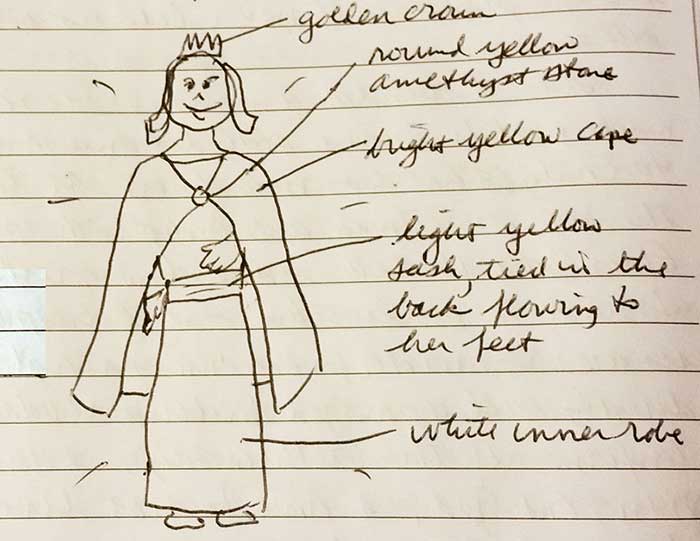 golden crown
round yellow
amethyst stone
bright yellow cape
light yellow
sash, tied in the
back, flowing to
her feet
white inner robe